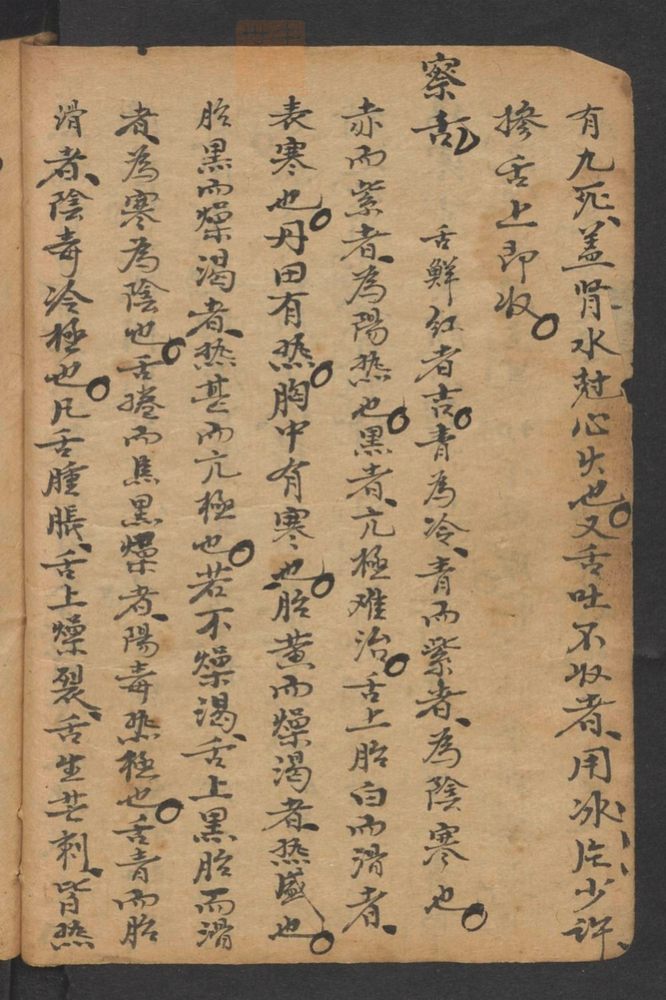 有九死、盖肾水尅心火也。又舌吐不收者、用冰片少許、
摻舌上即收。
察乱　舌鮮紅者吉。青為冷、青而紫者、為陰寒也。
赤而紫者、為陽热也。黑者、亢極难治。舌上胎白而滑者、
表寒也。丹田有热。胸中有寒也。胎黄而燥渴者、热盛也。
胎黑而燥渴者、热甚而亢極也。若不燥渴、舌上黑胎而滑
者、為寒為陰也。舌捲而焦黑燥者、陽毒热極也。舌青而胎
滑者、陰毒冷極也。凡舌腫脹、舌上燥裂、舌生芒刺、皆热